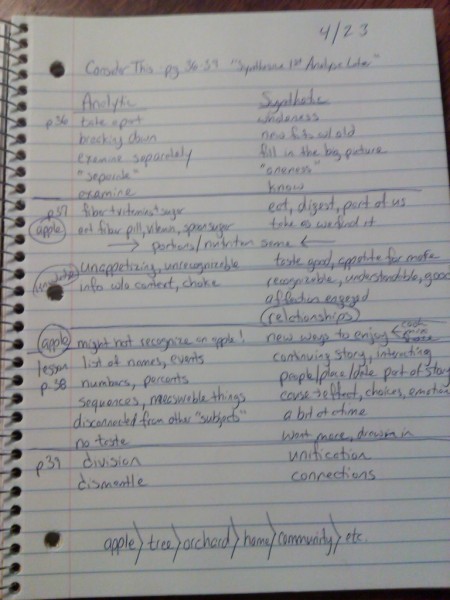 4/23
Consider This pg 36-39 "Synthesize 1st Analyze Later"
Analytic Synthetic
p36 take apart wholeness
breaking down new fits w/ old
examine separately fill in the big picture
"separate" "oneness"
examine know
p37 fiber + vitamins + sugar eat, digest, part of us
apple eat fiber pill, vitamin, spoon sugar take as we find it
→ portions/nutrition same ←
unappetizing, unrecognizable taste good, appetite for more
info w/o context, choke recognizable, understandable, good
affection engaged
(relationships)
apple might not recognize an apple! new ways to enjoy ←
lesson list of names, events continuing story, interesting
p38 numbers, percents people/place/date part of story
sequences, measurable things cause + effect, choices, emotion
disconnected from other "subjects" a bit at a time
no taste want more, drawn in
p39 division unification
dismantle connections
apple > tree > orchard > home > community > etc.